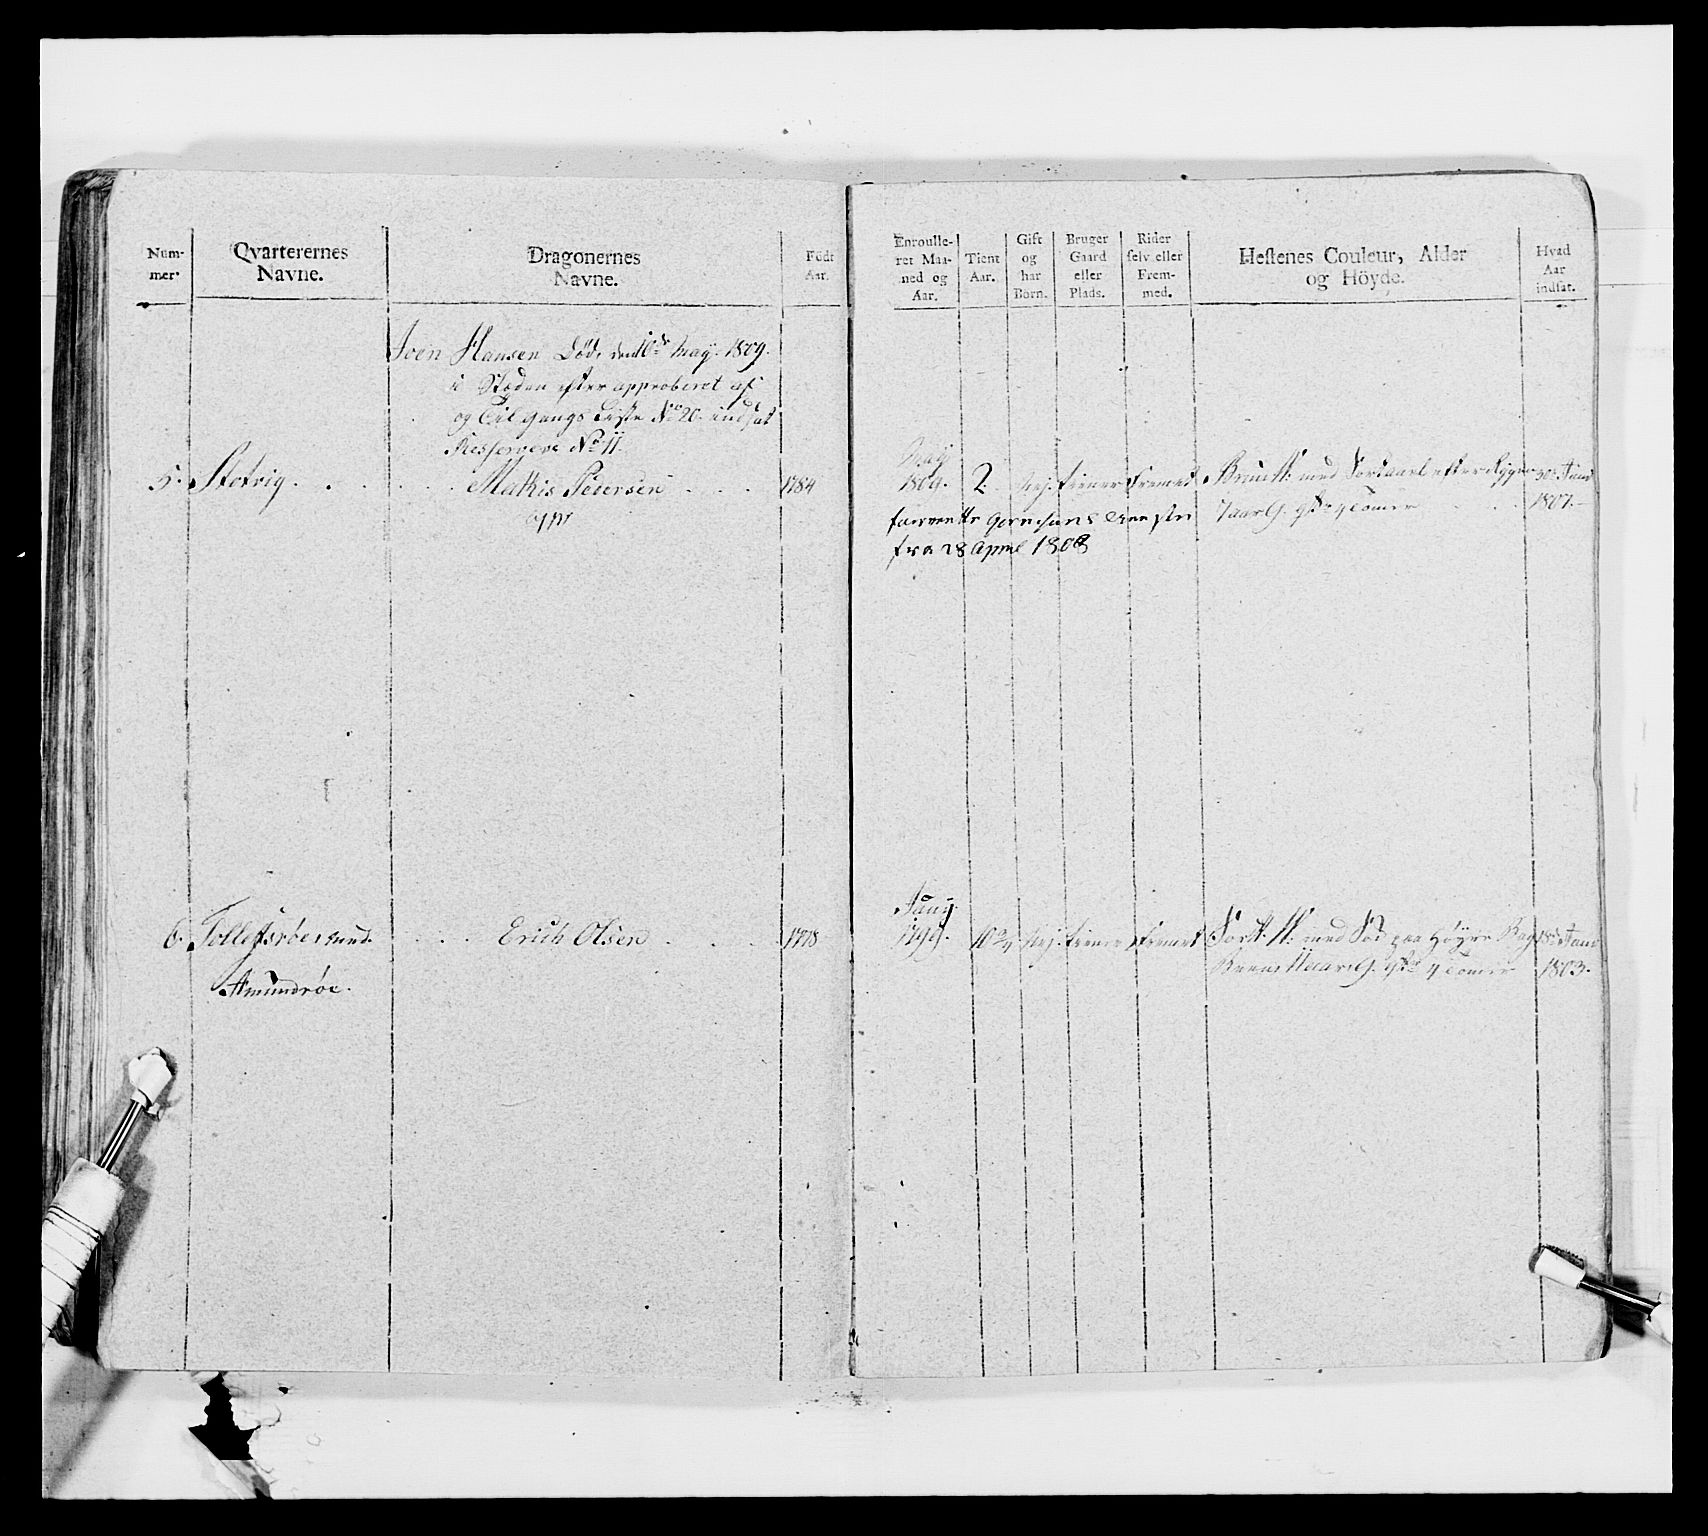 Num-
mer.
Qvarterernes
Navne.
Dragonernes
Navne.
Födt
Aar.
Enroulle-
ret Maa-
ned og
Aar.
Tient
Aar.
Gift
og
har
Børn.
Bruger
Gaard
eller
Plads.
Rider
selv eller
Frem-
med.
Hestenes Couleur, Alder
og Höyde.
Hvad
Aar
indsat.
Joen Hansen Död, den 10de May 1809.
i Steden efter approberet af
og Til gangs Liste No 20. indsat
Resserveve No 11.
5. Stotvig
Mathis Pedersen
1784
May
1809.
2.
Nej.
Tiener
Fremed
7 aar G.
30 Juni
1807.
forrette
fra 28 April 1808
6. Tollefsröer und.
Amundröe.
Erich Olsen
1778
Juny
1799.
10
Nej.
Tiener
Fremed
Sort H. med Sod paa Höyre Bag
18de Juni
1803.